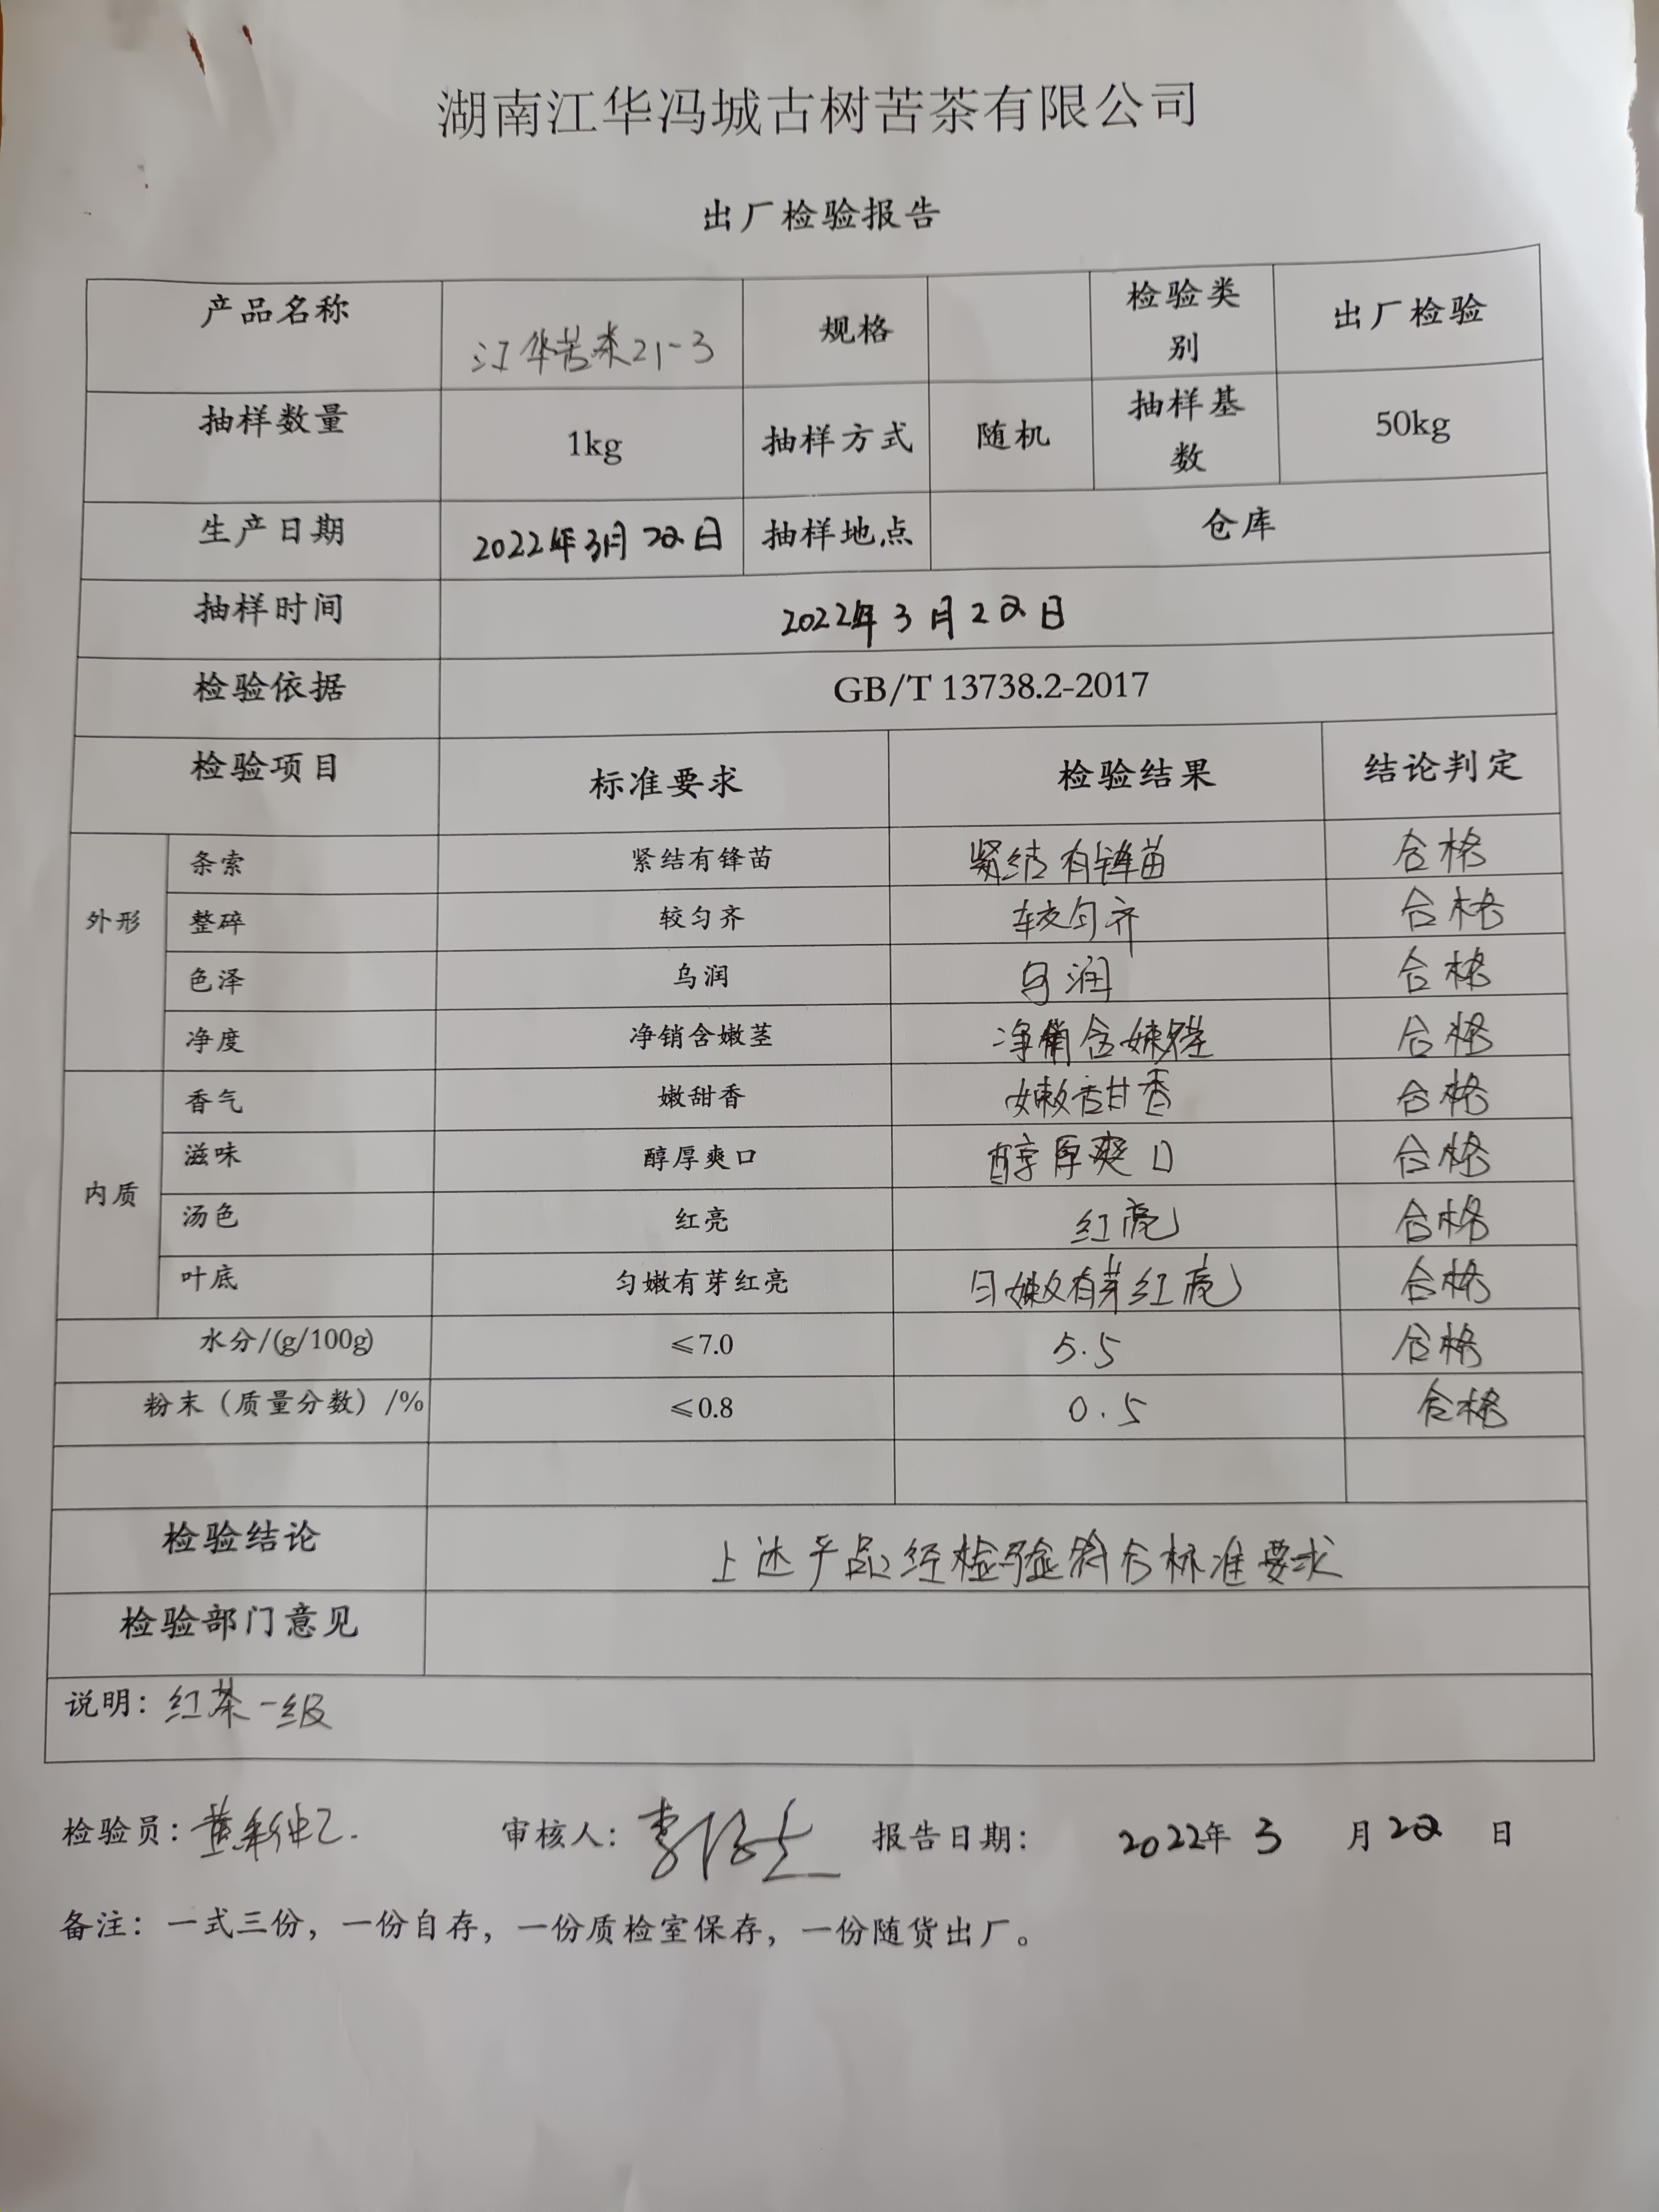 湖南江华冯城古树苦茶有限公司
出厂检验报告
产品名称 江华苦茶21-3 规格 检验类别 出厂检验
抽样数量 1kg 抽样方式 随机 抽样基数 50kg
生产日期 2022年3月22日 抽样地点 仓库
抽样时间 2022年3月22日
检验依据 GB/T 13738.2-2017
检验项目 标准要求 检验结果 结论判定
外形 条索 紧结有锋苗 紧结有锋苗 合格
整碎 较匀齐 较匀齐 合格
色泽 乌润 乌润 合格
净度 净销含嫩茎 净销含嫩茎 合格
内质 香气 嫩甜香 嫩甜香 合格
滋味 醇厚爽口 醇厚爽口 合格
汤色 红亮 红亮 合格
叶底 匀嫩有芽红亮 匀嫩有芽红亮 合格
水分/(g/100g) ≤7.0 5.5 合格
粉末（质量分数）/% ≤0.8 0.5 合格
检验结论 上述产品经检验符合标准要求
检验部门意见
说明：红茶一级
检验员： 审核人： 报告日期： 2022年 3 月 22 日
备注：一式三份，一份自存，一份质检室保存，一份随货出厂。